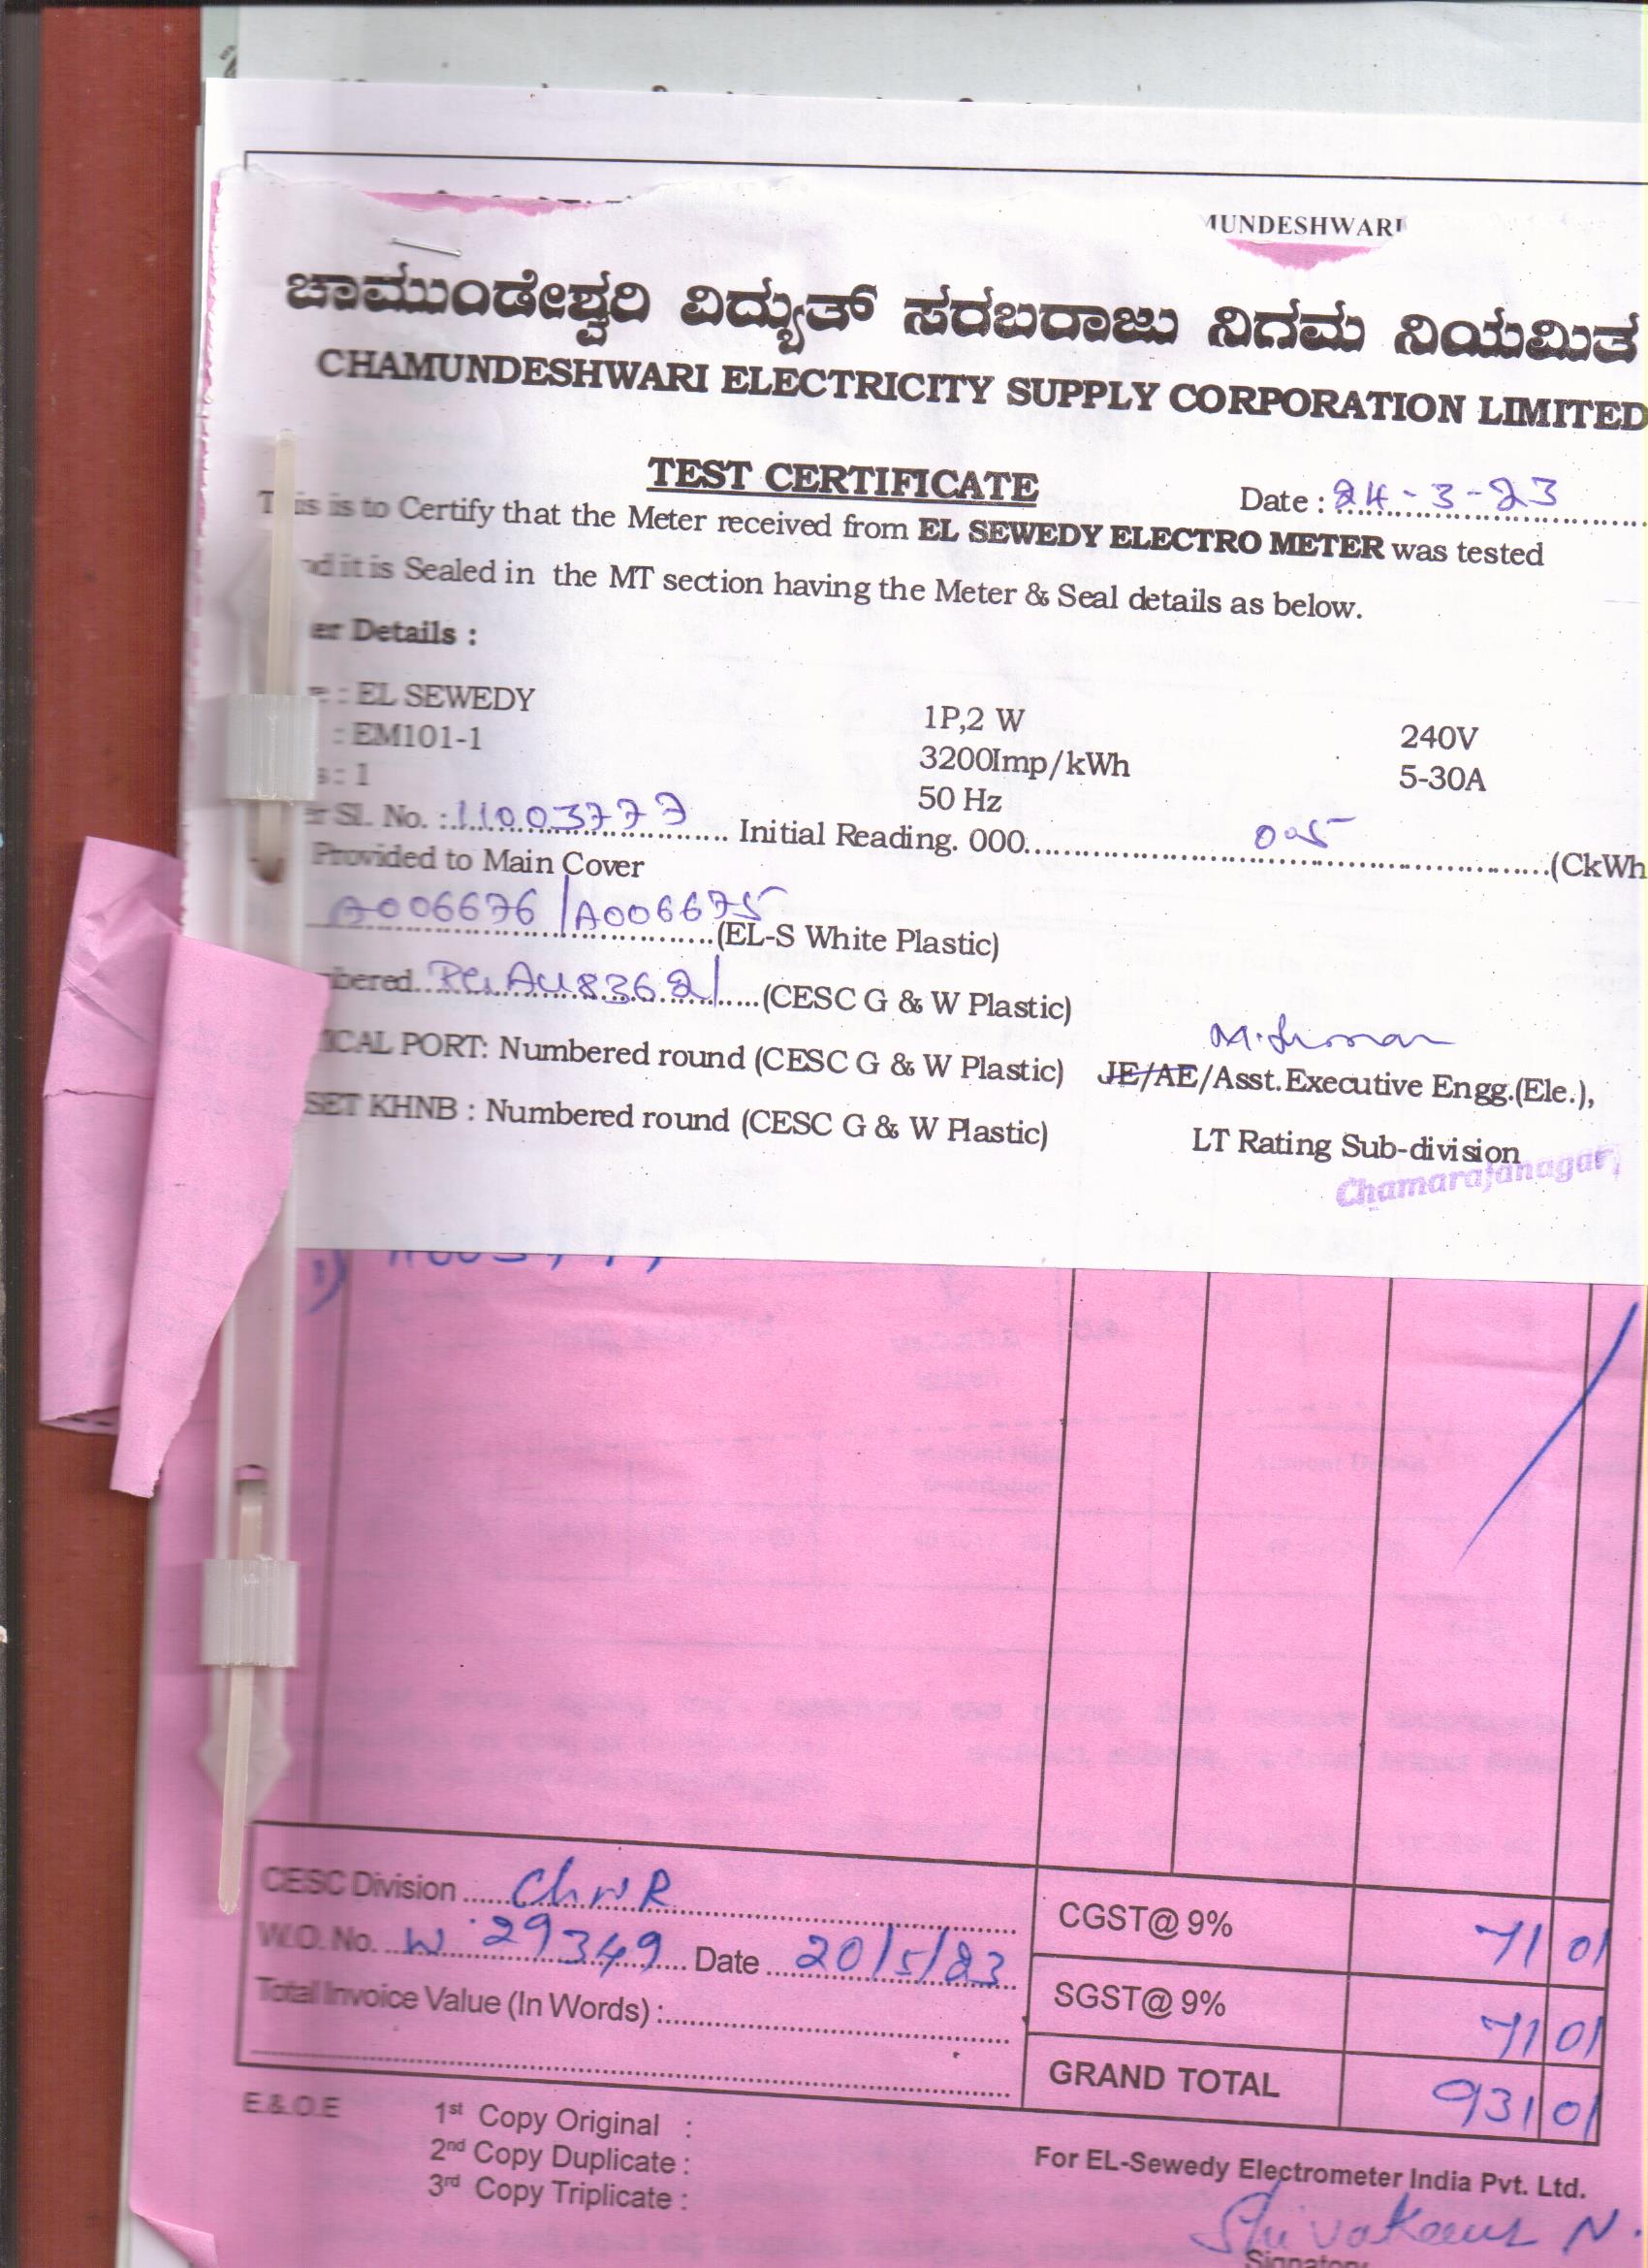 MUNDESHWARI
ಚಾಮುಂಡೇಶ್ವರಿ ವಿದ್ಯುತ್ ಸರಬರಾಜು ನಿಗಮ ನಿಯಮಿತ
CHAMUNDESHWARI ELECTRICITY SUPPLY CORPORATION LIMITED
TEST CERTIFICATE
Date : 24-3-23
This is to Certify that the Meter received from EL SEWEDY ELECTRO METER was tested
nd it is Sealed in the MT section having the Meter & Seal details as below.
er Details :
e : EL SEWEDY 1P,2 W 240V
: EM101-1 3200Imp/kWh 5-30A
s : 1 50 Hz
er Sl. No. : 11003777 Initial Reading. 000 005 (CkWh
Provided to Main Cover
A006676 / A006675 (EL-S White Plastic)
bered AU83621 (CESC G & W Plastic)
ICAL PORT: Numbered round (CESC G & W Plastic) JE/AE/Asst.Executive Engg.(Ele.),
SET KHNB : Numbered round (CESC G & W Plastic) LT Rating Sub-division
Chamarajanagar
CESC Division ChNR
W.O. No. W 29349 Date 20/5/23
Total Invoice Value (In Words) :
CGST@ 9% 71 01
SGST@ 9% 71 01
GRAND TOTAL 931 01
E.&.O.E
1st Copy Original :
2nd Copy Duplicate :
3rd Copy Triplicate :
For EL-Sewedy Electrometer India Pvt. Ltd.
Signatory